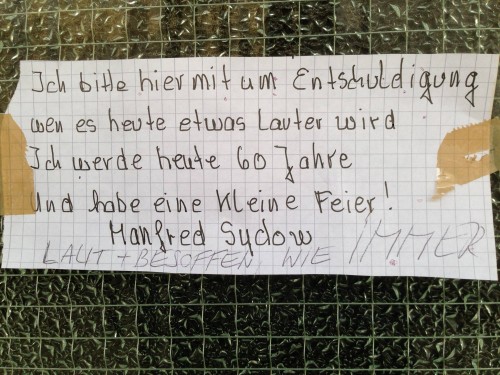 Ich bitte hiermit um Entschuldigung
wen es heute etwas Lauter wird
Ich werde heute 60 Jahre
und habe eine kleine Feier!
Manfred Sydow
LAUT + BESOFFEN, WIE IMMER